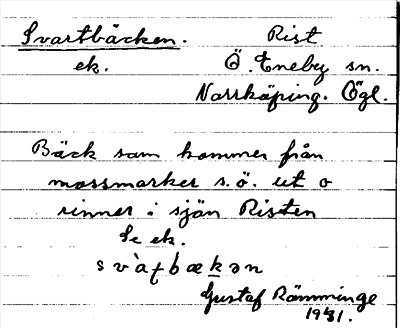 Svartbäcken. Rist
ek. Ö. Eneby sn.
Norrköping. Ögl.
Bäck som kommer från
mossmarker s.ö. ut o
rinner i sjön Risten
Se ek.
Gustaf Rämminge
1931.